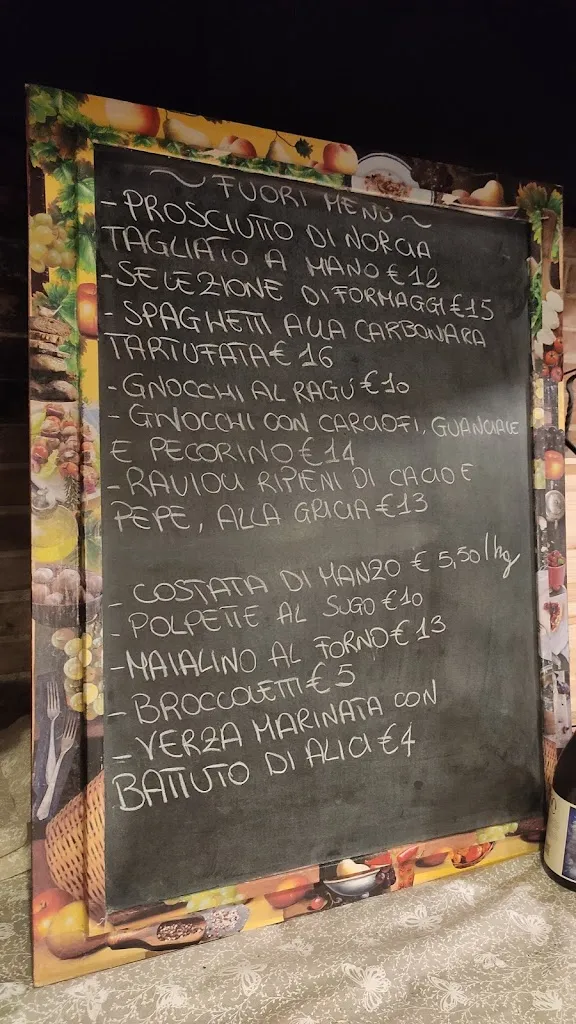 ~ FUORI MENÙ ~
- PROSCIUTTO DI NORCIA
TAGLIATO A MANO € 12
- SELEZIONE DI FORMAGGI € 15
- SPAGHETTI ALLA CARBONARA
TARTUFATA € 16
- GNOCCHI AL RAGÙ € 10
- GNOCCHI CON CARCIOFI, GUANCIALE
E PECORINO € 14
- RAVIOLI RIPIENI DI CACIO E
PEPE, ALLA GRICIA € 13
- COSTATA DI MANZO € 5,50/hg
- POLPETTE AL SUGO € 10
- MAIALINO AL FORNO € 13
- BROCCOLETTI € 5
- VERZA MARINATA CON
BATTUTO DI ALICI € 4